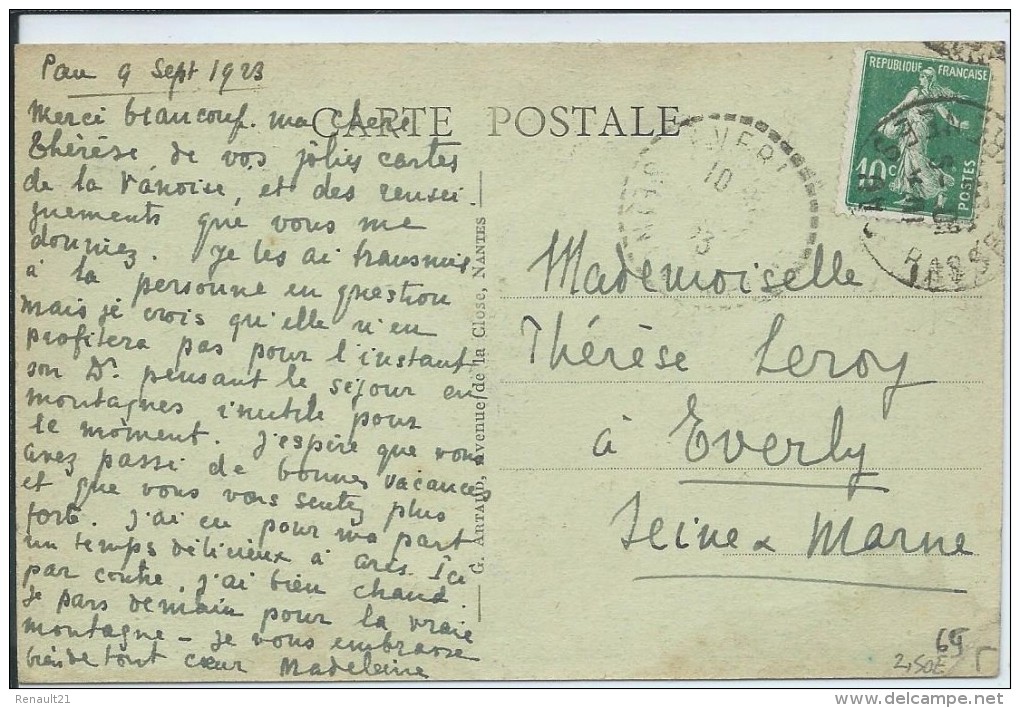 Pau 9 Sept 1923
Merci beaucoup. ma chère
Thérèse de vos jolies cartes
de la Vanoise, et des rensei-
gnements que vous me
donniez. Je les ai transmis
à la personne en question
mais je crois qu'elle n'en
profitera pas pour l'instant
son Dr. pensant le séjour en
montagnes inutile pour
le moment. J'espère que vous
avez passé de bonnes vacances
et que vous vous sentez plus
forte. J'ai eu pour ma part
un temps délicieux à Ici
par contre, j'ai bien chaud.
Je pars demain pour la vraie
montagne - je vous embrasse
bien de tout cœur Madeleine
CARTE POSTALE
G. ARTAUD, Avenue de la Close, NANTES
REPUBLIQUE FRANÇAISE
10 c
POSTES
10
Mademoiselle
Thérèse Leroy
à Everly
Seine & Marne
65
2,50E
Renault21
www.delcampe.net